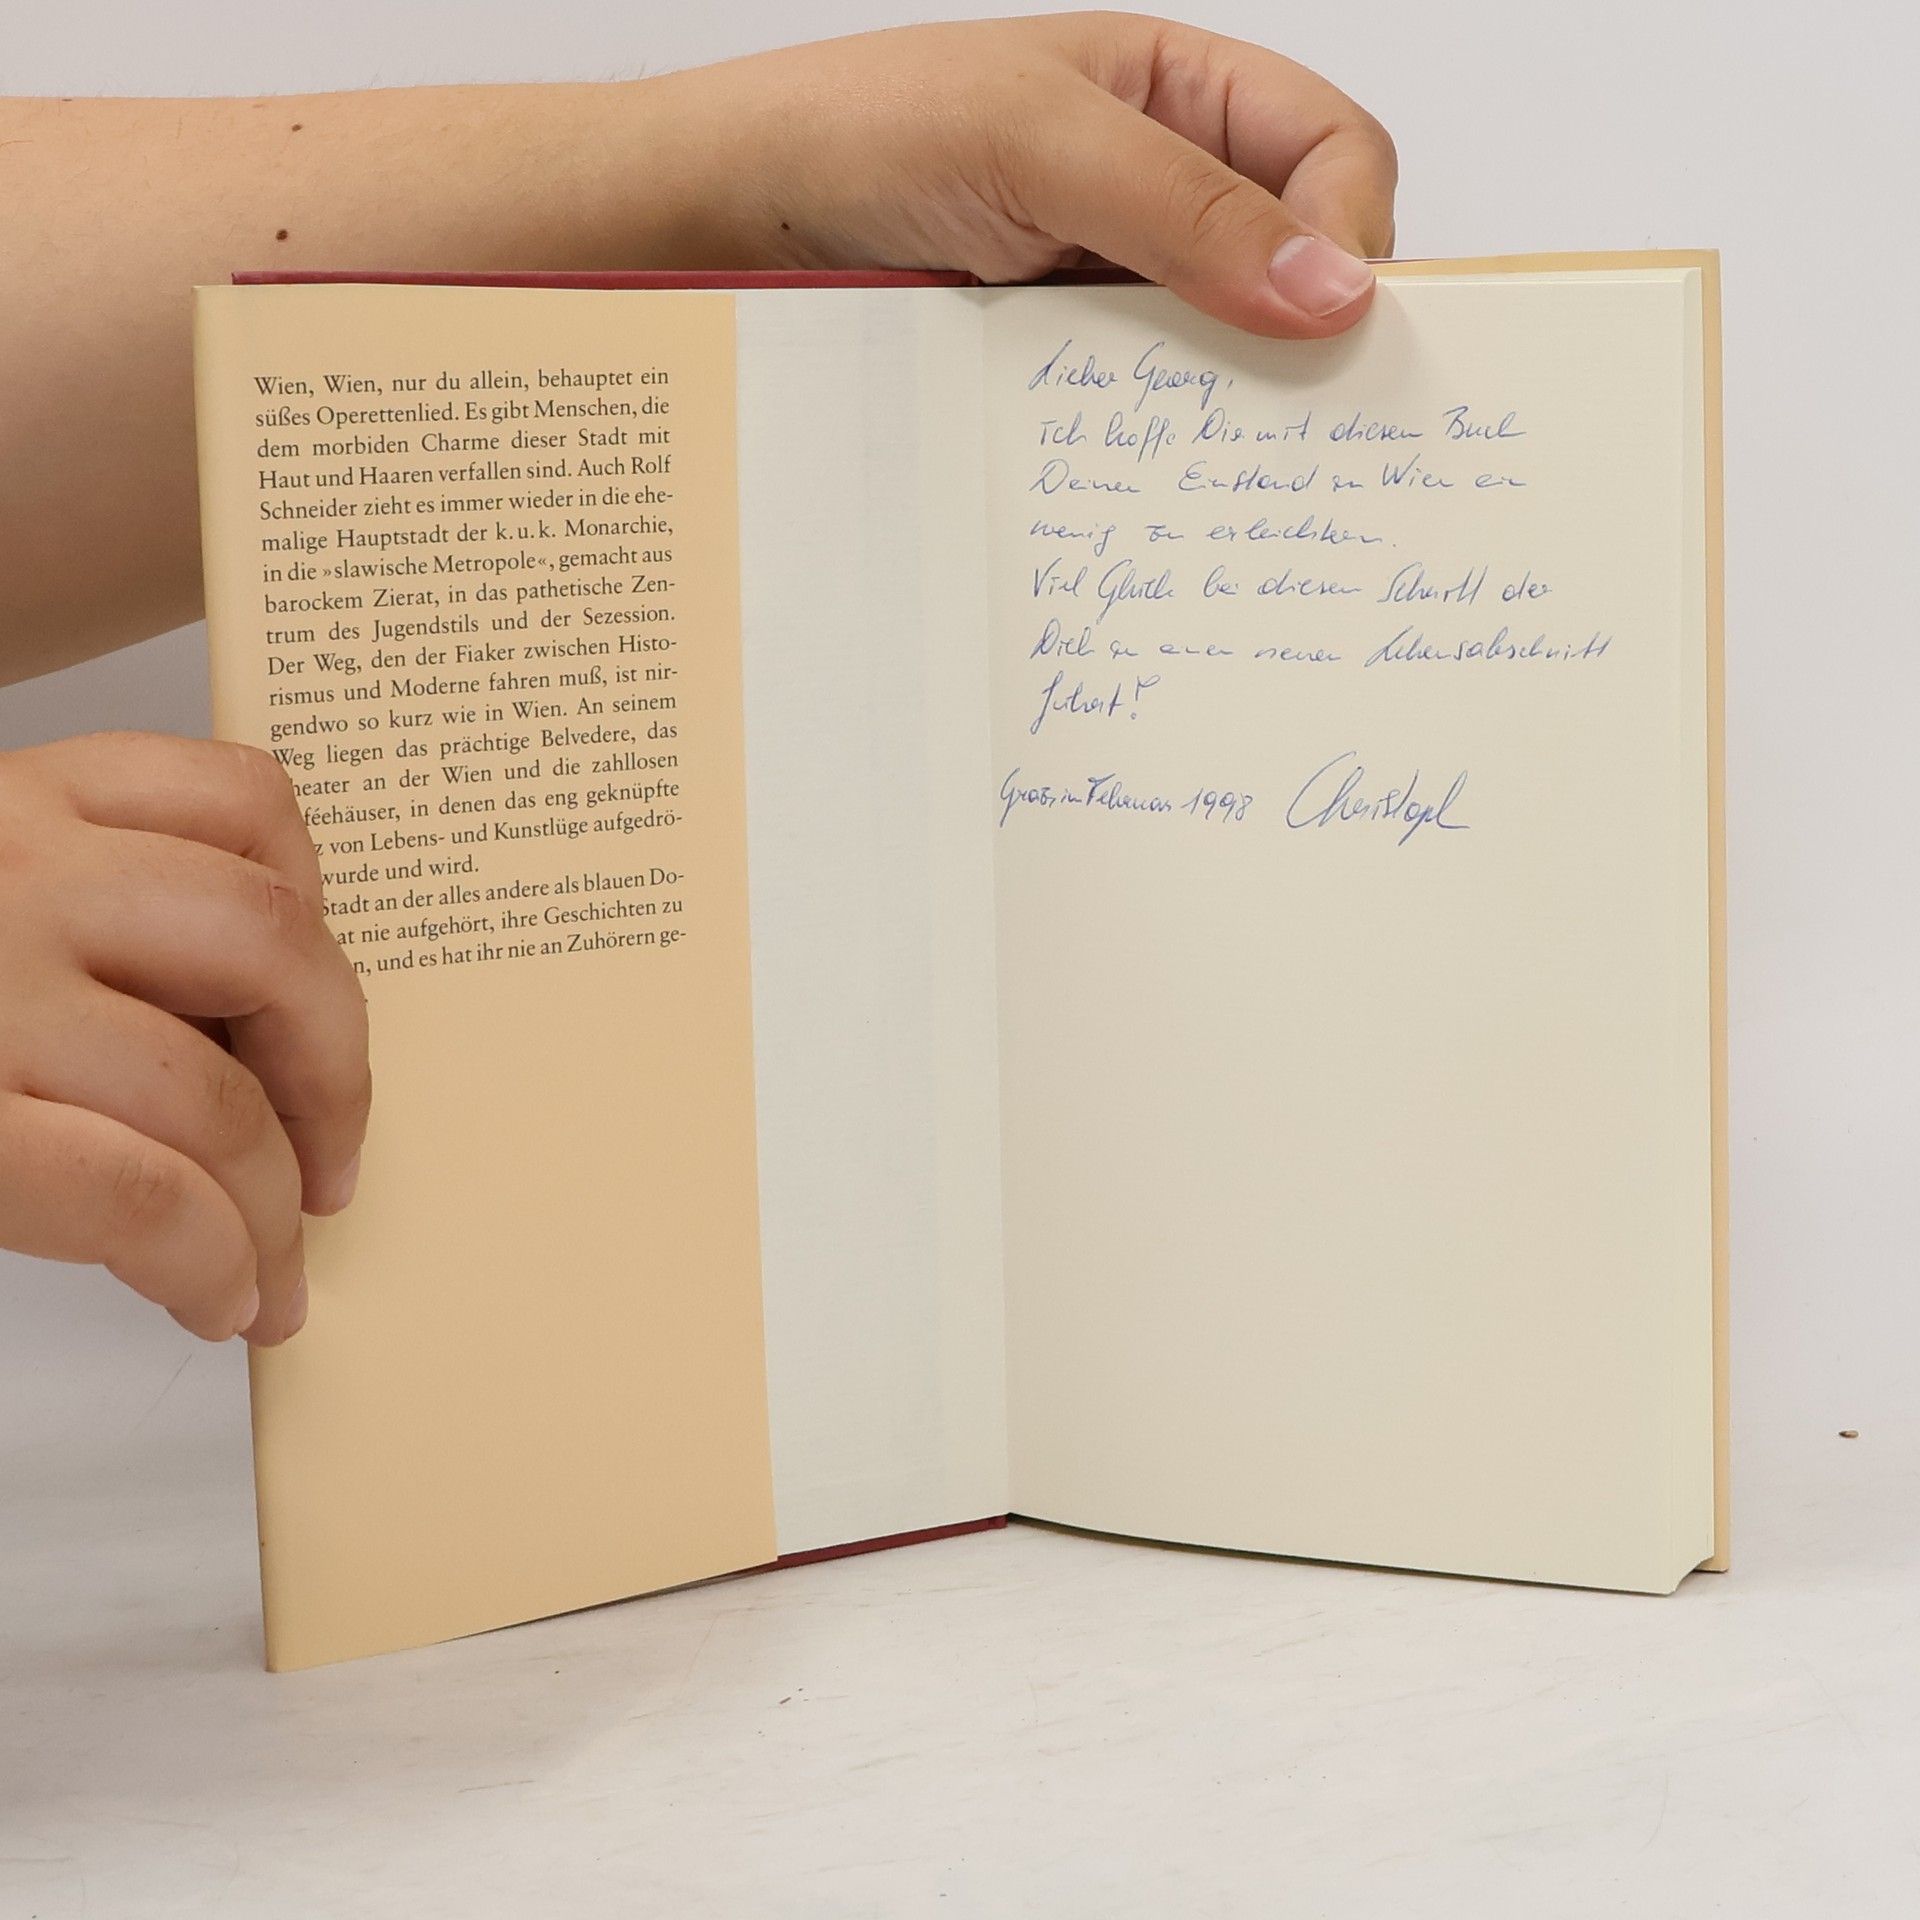 Wien, Wien, nur du allein, behauptet ein
süßes Operettenlied. Es gibt Menschen, die
dem morbiden Charme dieser Stadt mit
Haut und Haaren verfallen sind. Auch Rolf
Schneider zieht es immer wieder in die ehe-
malige Hauptstadt der k. u. k. Monarchie,
in die »slawische Metropole«, gemacht aus
barockem Zierat, in das pathetische Zen-
trum des Jugendstils und der Sezession.
Der Weg, den der Fiaker zwischen Histo-
rismus und Moderne fahren muß, ist nir-
gendwo so kurz wie in Wien. An seinem
Weg liegen das prächtige Belvedere, das
heater an der Wien und die zahllosen
féehäuser, in denen das eng geknüpfte
z von Lebens- und Kunstlüge aufgedrö-
wurde und wird.
Stadt an der alles andere als blauen Do-
at nie aufgehört, ihre Geschichten zu
n, und es hat ihr nie an Zuhörern ge-
Lieber Georg,
ich hoffe Dir mit diesem Buch
Deinen Einstand in Wien ein
wenig zu erleichtern.
Viel Glück bei diesem Schritt der
Dich in einen neuen Lebensabschnitt
führt!
Graz, im Februar 1998 Christoph